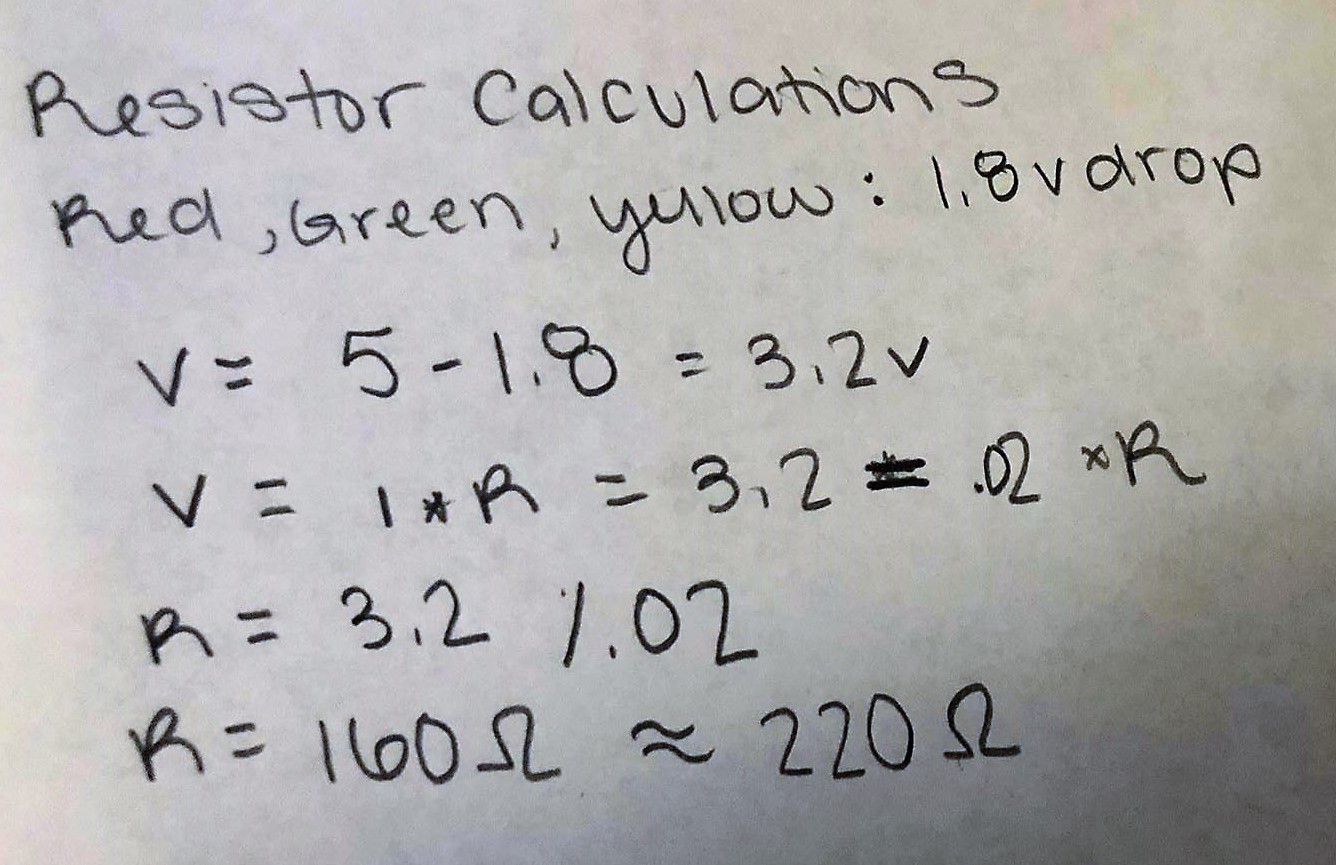 Resistor Calculations
Red, Green, yellow : 1.8v drop
V = 5 - 1.8 = 3.2v
V = I * R = 3.2 = .02 * R
R = 3.2 / .02
R = 160Ω ≈ 220Ω